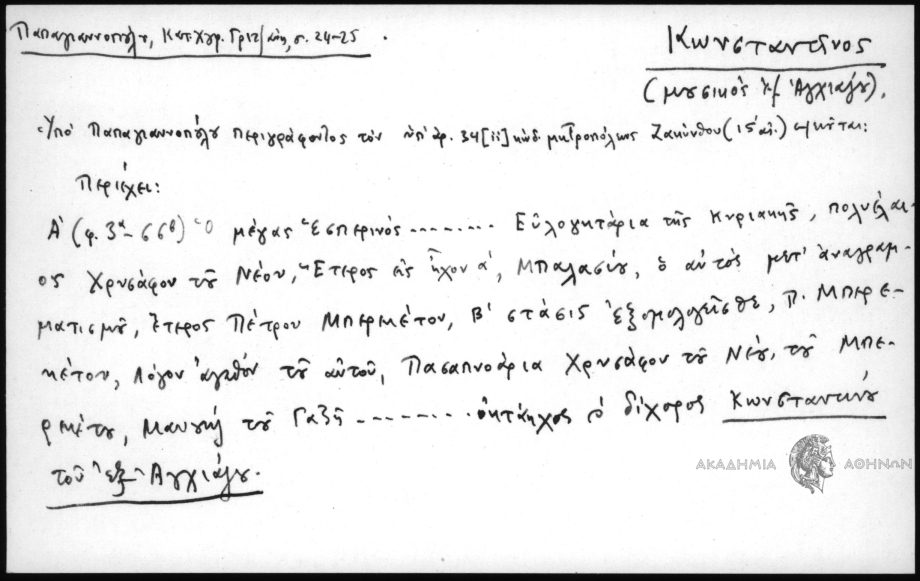 Παπαγιαννοπούλου, Κατ. Χγρ. Γριτσάνη, σ. 24-25.
Κωνσταντῖνος
(μουσικὸς ἐξ Ἀγχιάλου).
Ὑπὸ Παπαγιαννοπούλου περιγράφοντος τὸν ὑπ' ἀρ. 34[ii] κώδ. μητροπόλεως Ζακύνθου (15 αἰ.)
Περιέχει:
Α' (φ. 3α-66β) Ὁ μέγας Ἑσπερινός......... Εὐλογητάρια τῆς Κυριακῆς, πολυέλαι-
ος Χρυσάφου τοῦ Νέου, Ἕτερος εἰς ἦχον α', Μπαλασίου, ὁ αὐτὸς μετ' ἀναγραμ-
ματισμοῦ, Ἕτερος Πέτρου Μπερεκέτου, Β' στάσις ἐξομολογεῖσθε, Π. Μπερε-
κέτου, Λόγον ἀγαθὸν τοῦ αὐτοῦ, Πασαπνοάρια Χρυσάφου τοῦ Νέου, τοῦ Μπε-
ρεκέτου, Μανουὴλ τοῦ Γαζῆ ......... ὀκτάηχος ὁ δίχορος Κωνσταντίνου
τοῦ ἐξ Ἀγχιάλου.
ΑΚΑΔΗΜΙΑ ΑΘΗΝΩΝ